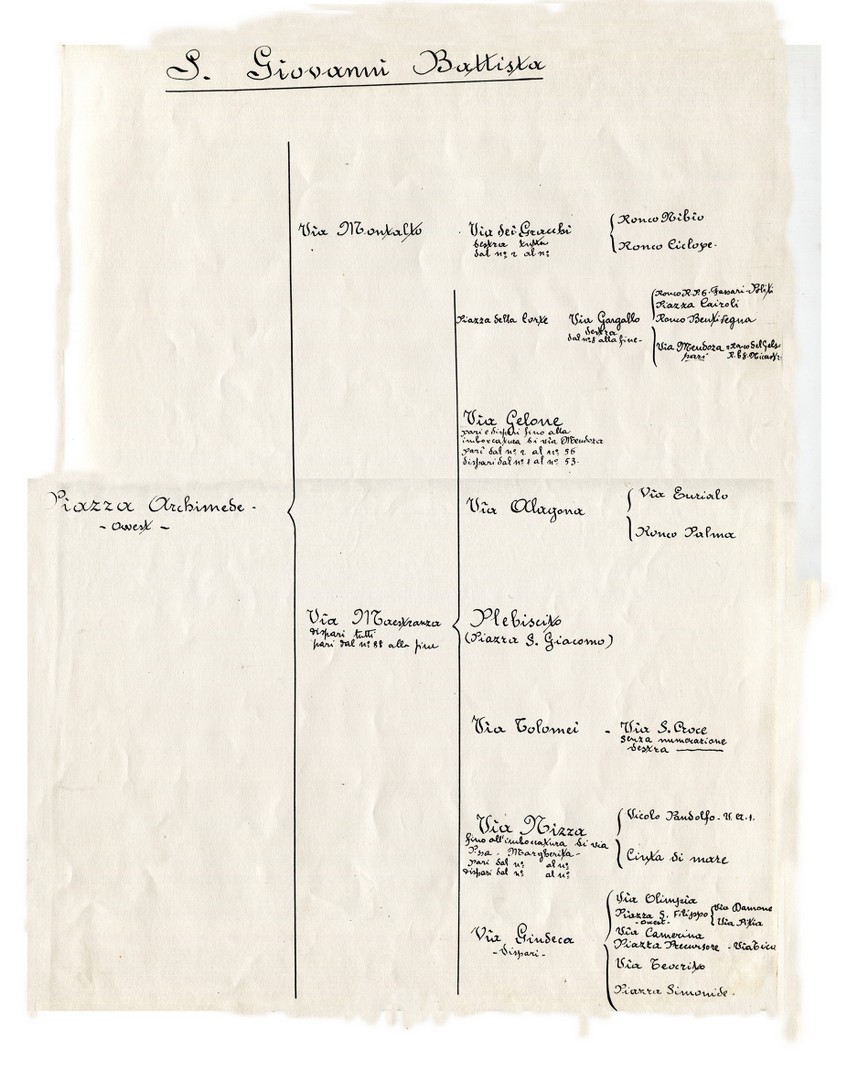 S. Giovanni Battista
Via Montalto
Via dei Gracchi
destra tutta
dal n: 2 al n:
Ronco Nibio
Ronco Ciclope.
Piazza della Corte
Via Gargallo
destra
dal n: 8 alla fine-
Ronco
Piazza Cairoli
Ronco Bentifegna
Via Mendoza
pari
Via Gelone
pari e dispari fino alla
imboccatura di via Mendoza
pari dal n: 2 al n: 56
dispari dal n: 1 al n: 53.
Piazza Archimede -
- Ovest -
Via Alagona
Via Eurialo
Ronco Palma
Via Maestranza
dispari tutti
pari dal n: 88 alla fine
Plebiscito
(Piazza S. Giacomo)
Via Tolomei - Via S. Croce
senza numerazione
destra
Via Nizza
fino all'imboccatura di via
Pssa - Margherita -
pari dal n: al n:
dispari dal n: al n:
Vicolo Pandolfo -
Cinta di mare
Via Giudeca
- Dispari -
Via Olimpia
Piazza S. Filippo
- ovest -
Via Damone
Via Atia
Via Camerina
Piazza Precursore - Via Tica
Via Teocrito
Piazza Simonide -